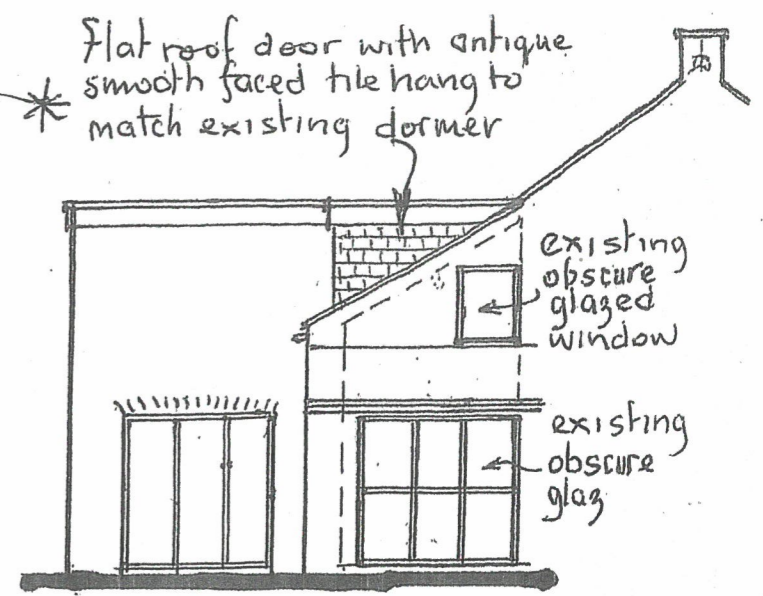 Flat roof door with antique
smooth faced tile hang to
match existing dormer
existing
obscure
glazed
window
existing
obscure
glaz